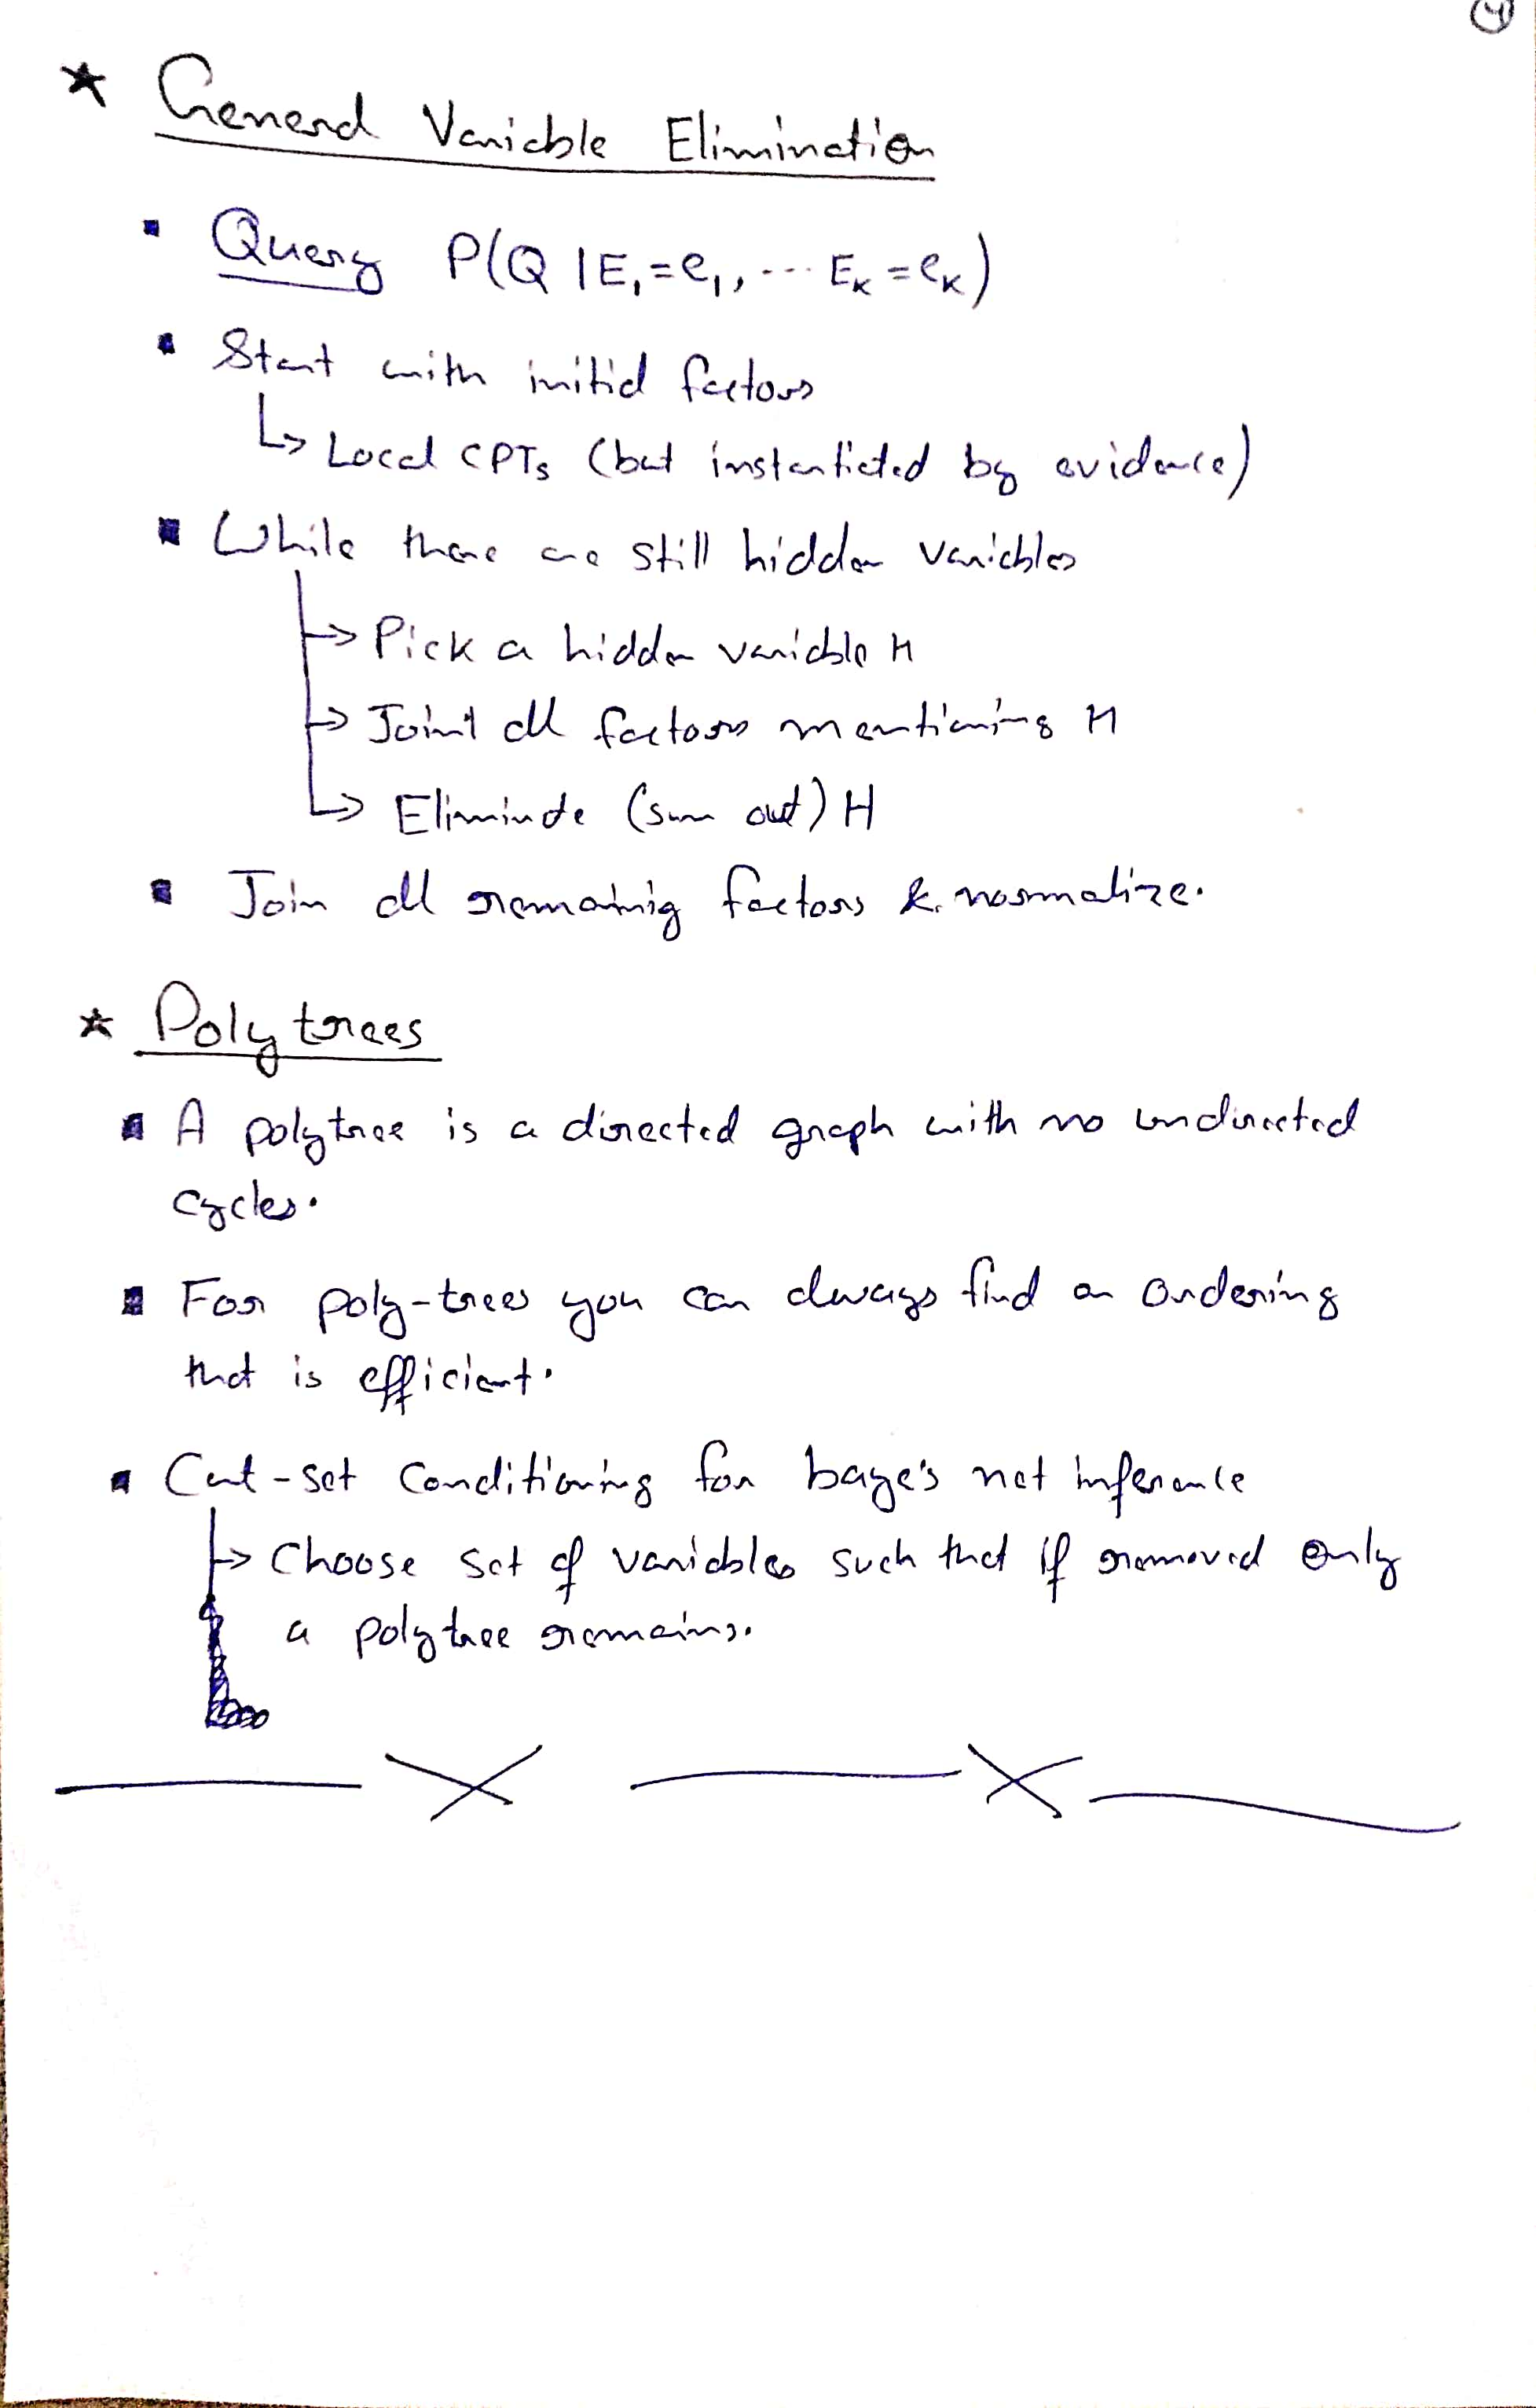 4
* General Variable Elimination
▪ Query P(Q | E₁=e₁, ... Eₖ=eₖ)
▪ Start with initial factors
↳ Local CPTs (but instantiated by evidence)
▪ While there are still hidden variables
→ Pick a hidden variable H
→ Joint all factors mentioning H
→ Eliminate (sum out) H
▪ Join all remainig factors & normalize.
* Polytrees
▪ A polytree is a directed graph with no undirected
cycles.
▪ For poly-trees you can always find an ordering
that is efficient.
▪ Cut-set Conditioning for baye's net inference
→ Choose set of variables such that if removed only
a polytree remains.